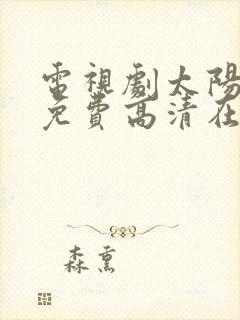 電視劇太陽
免費高清在
森熏